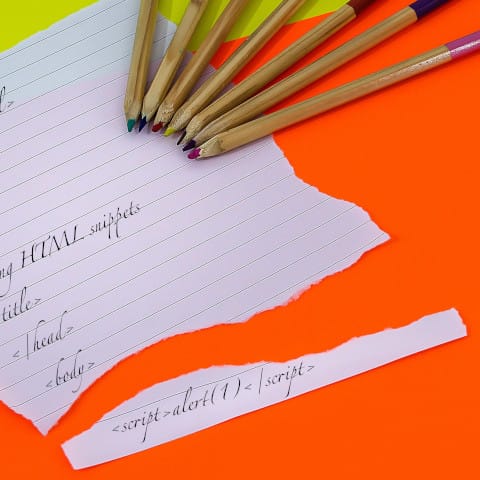 l>
ng HTML snippets
title>
</head>
<body>
<script>alert(1)</script>